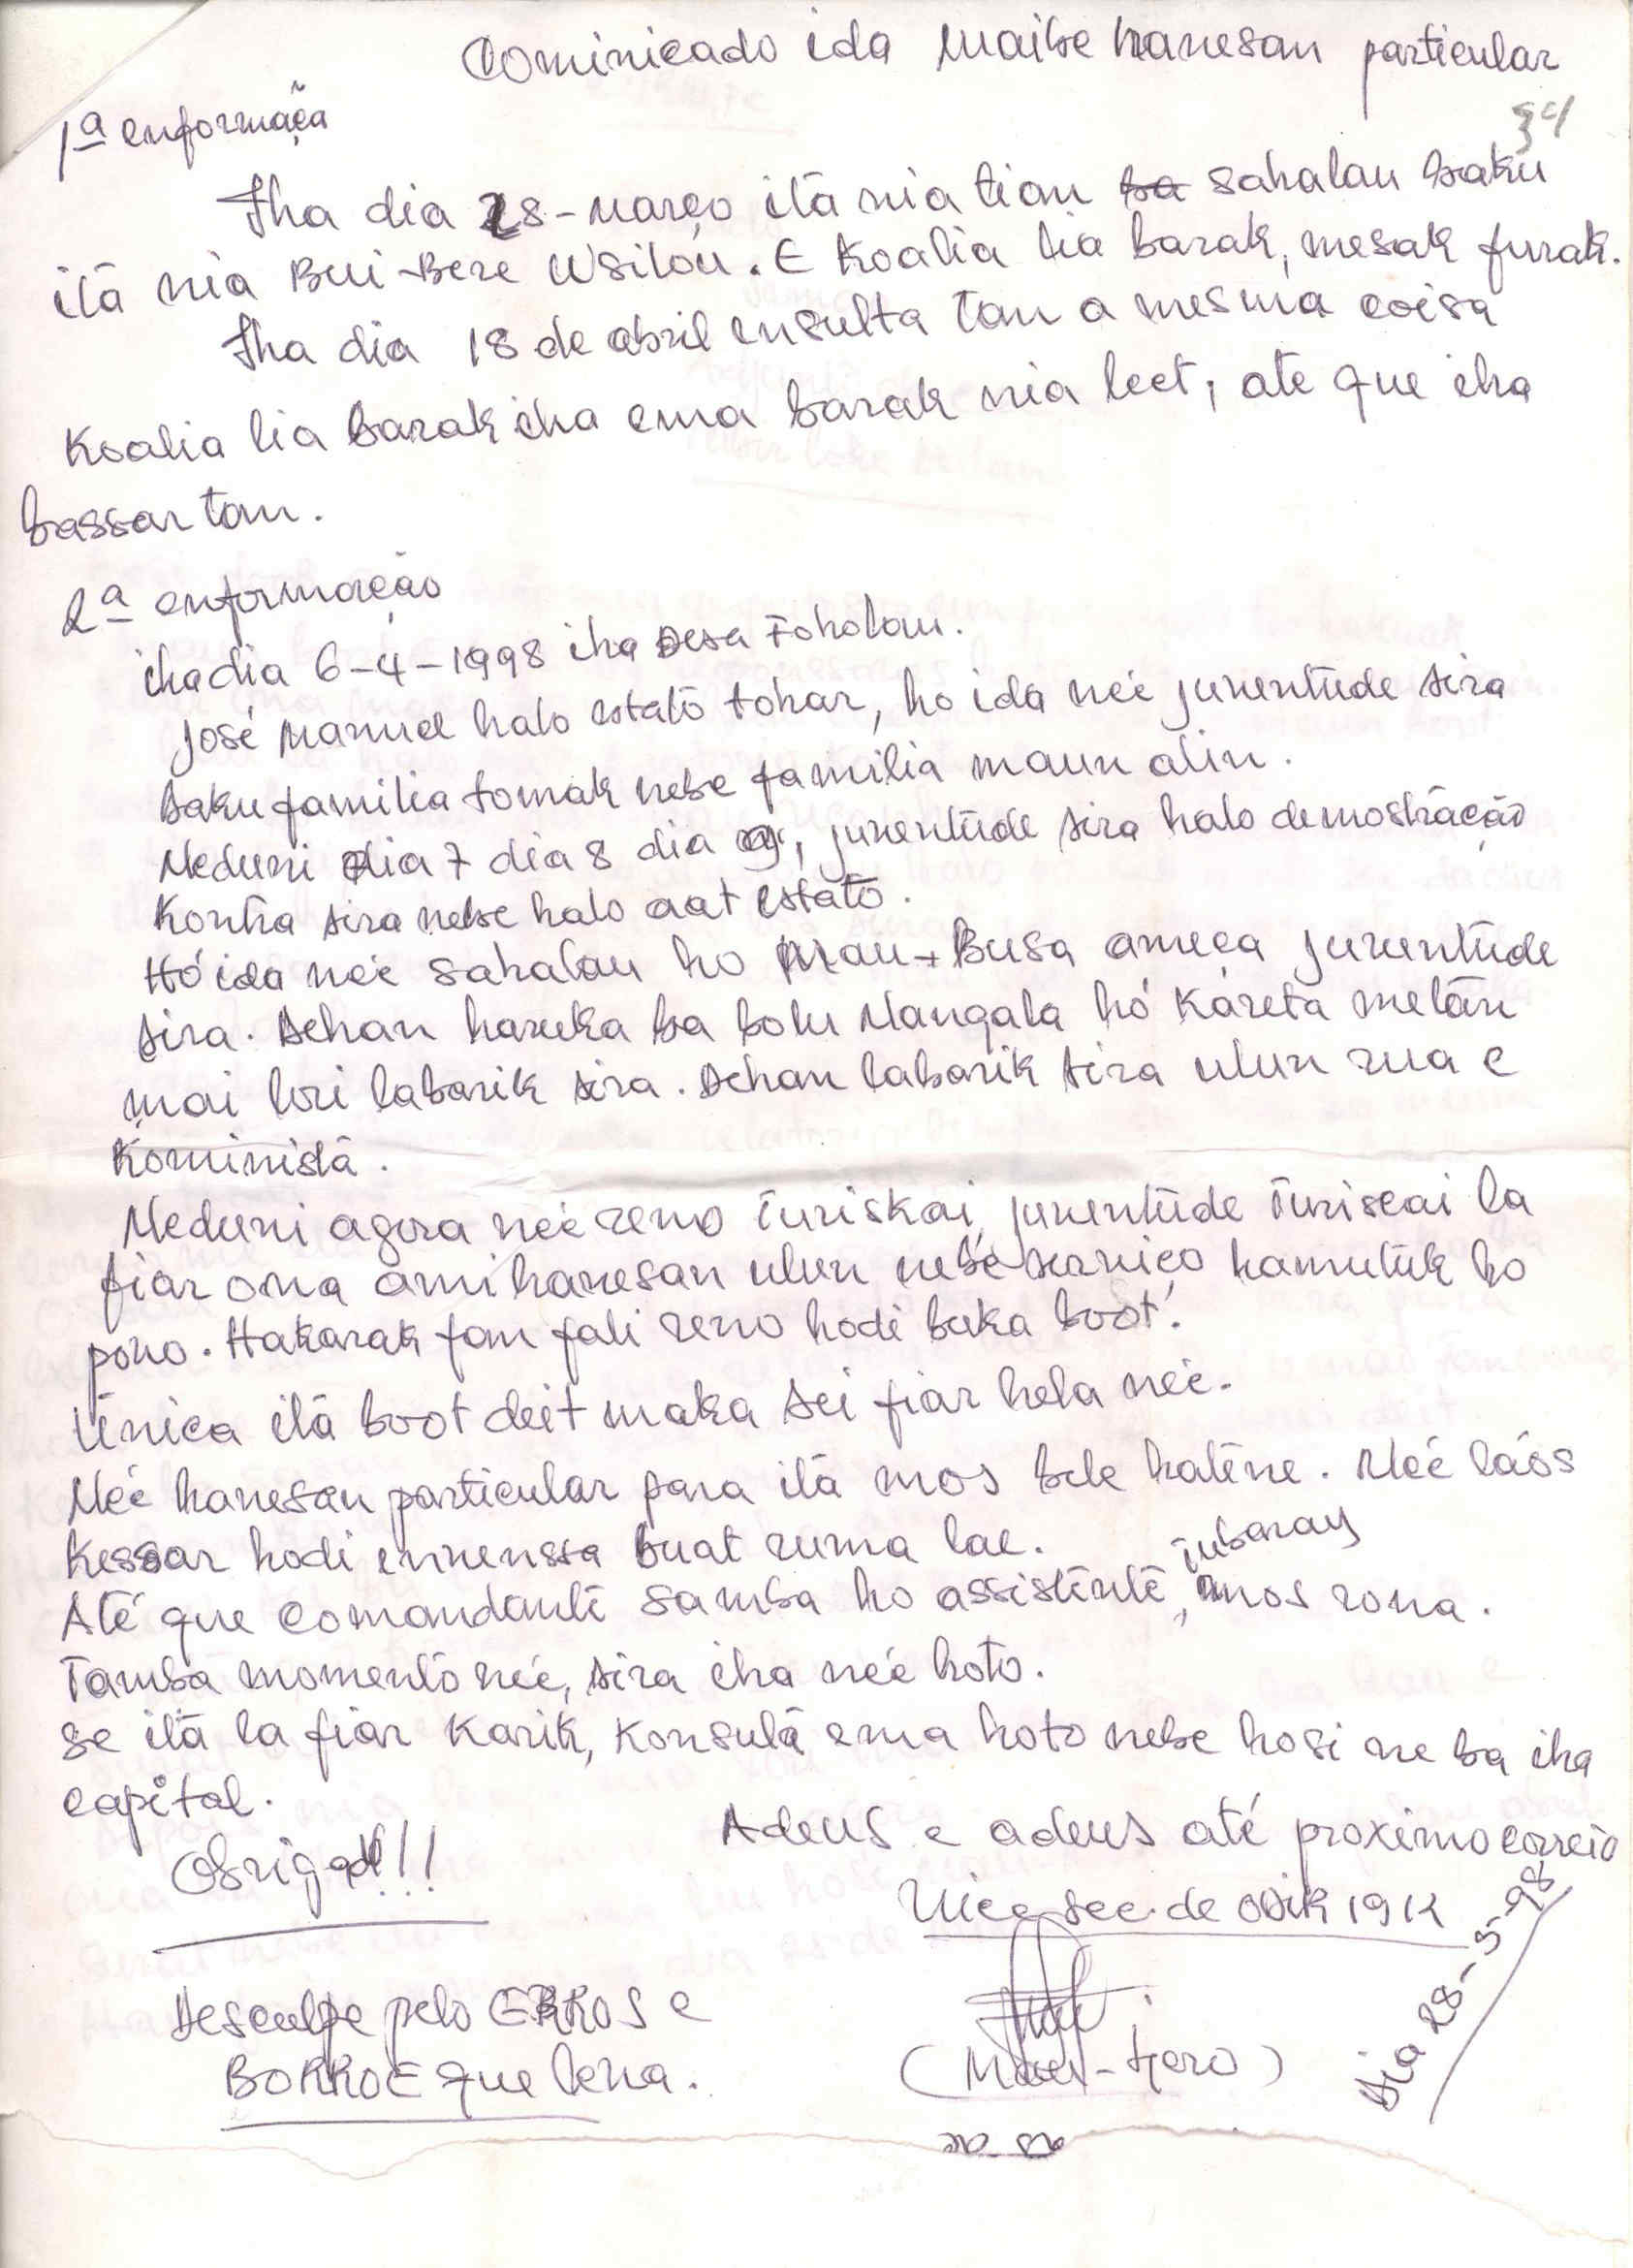 Cominicado ida Maibe hanesan particular
34
1ª enformação
Iha dia 28-março itá nia tian sahalau baku
itá nia Bui-Bere U'silóu. E koalia lia barak, mesak furak.
Iha dia 18 de abril ensulta tan a mesma coisa
koalia lia barak iha ema barak nia leet, ate que iha
bassar tan.
2ª enformação
iha dia 6-4-1998 iha Desa Foholau.
José Manuel halo estató tohar, ho ida neé juventude sira
baku familia tomak nebe familia maun alin.
Neduni dia 7 dia 8 dia 9, juventude sira halo demostração
Kontra sira nebe halo aat estató.
Hó ida neé sahalau ho Mau-Busa ameça juventude
sira. Dehan haruka ba bolu Nangala hó kareta metan
mai lori labarik sira. Dehan labarik sira ulun rua e
Kominista.
Neduni agora neé reno Turiskai, juventude Turiscai la
fiar ona ami hanesan ulun nebé serviço hamutuk ho
povo. Hakarak fan fali reno hodi buka boot.
Única itá boot deit maka sei fiar hela neé.
Neé hanesan particular para itá mos bele haténe. Neé láos
Kessar hodi envenssa buat ruma lae.
Até que Comandanté Samba ho assisténté, Tubaray mos rona.
Tamba momentó neé, sira iha neé hoto.
Se itá la fiar Karik, Konsulá ema hoto nebe hosi ne ba iha
capital.
Adeus e adeus até proximo correio
Obrigad!!!
Vice sec. de Obik 1912
Desculpe pelo ERROS e
BORROE que leva.
Dia 28-5-98